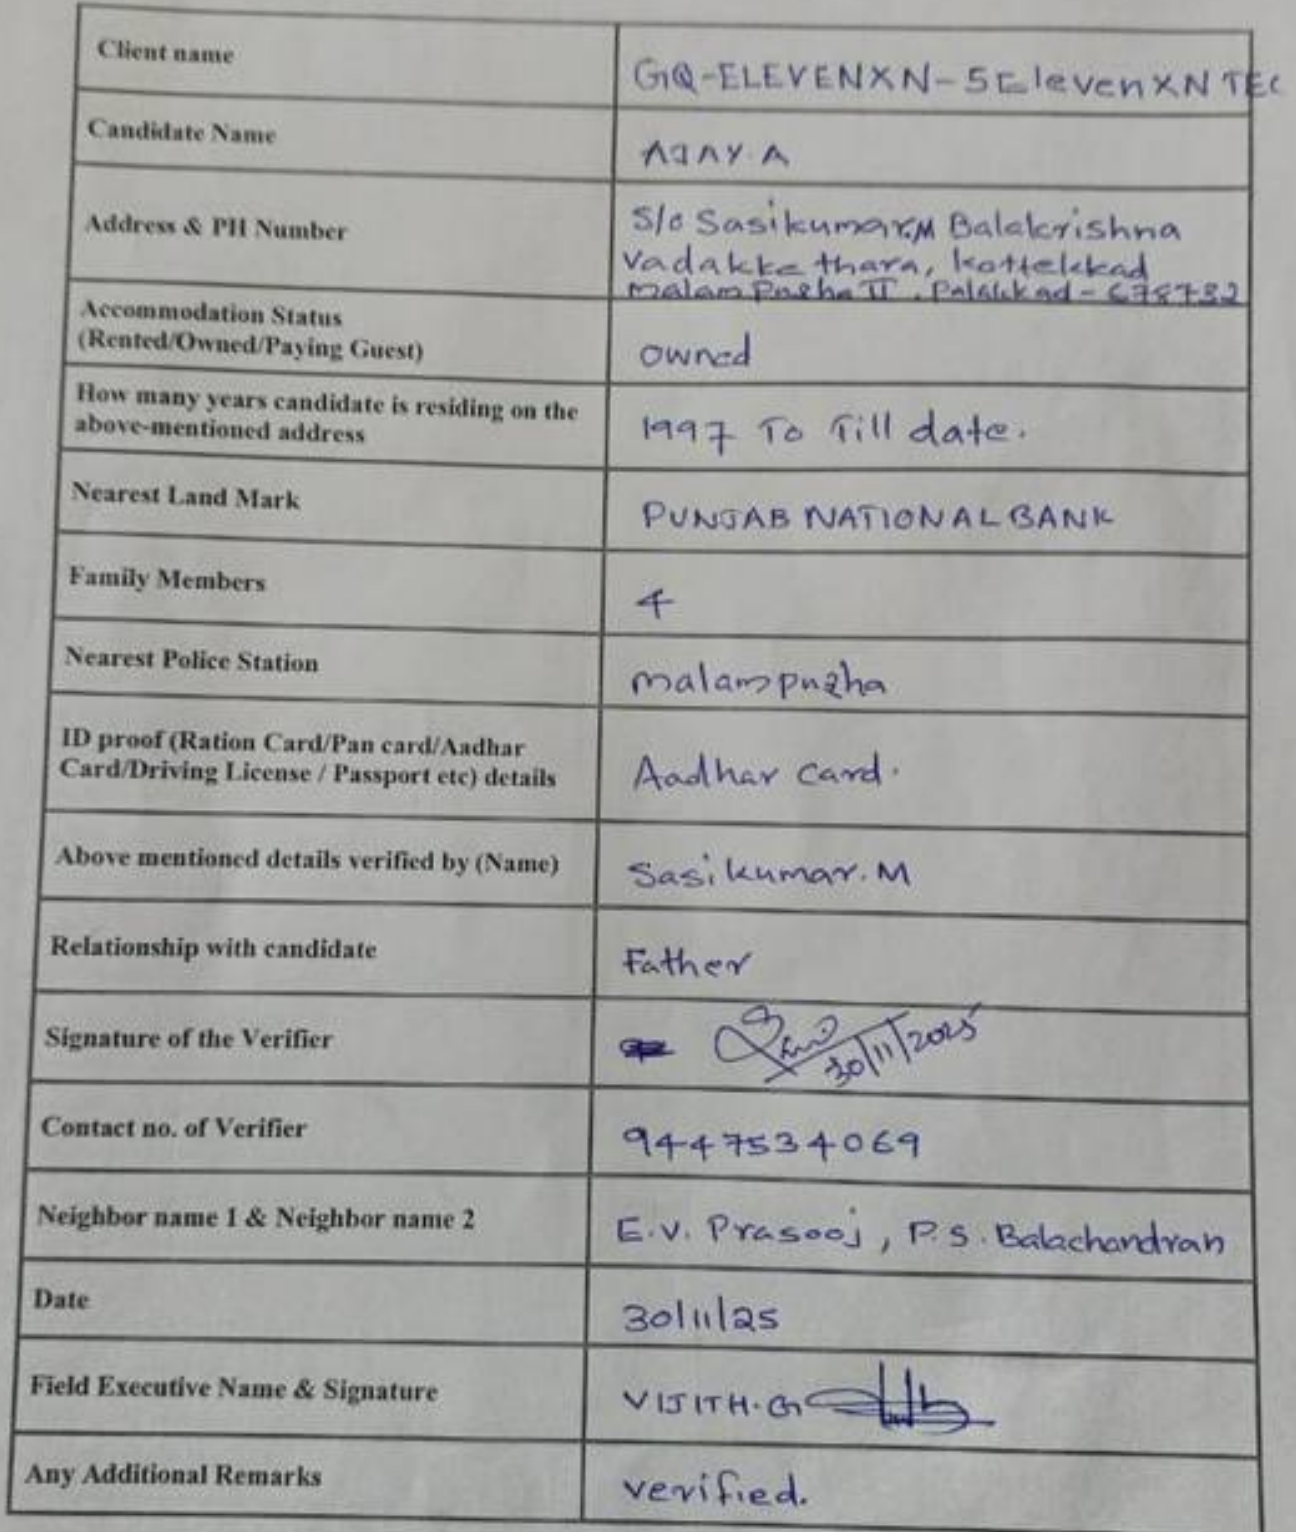 Client name
GQ-ELEVENXN-5ElevenXN TEC
Candidate Name
AJAY.A
Address & PH Number
S/o Sasikumar.M Balakrishna
Vadakke thara, Kottekkad
malampuzha II, Palakkad - 678732
Accommodation Status
(Rented/Owned/Paying Guest)
owned
How many years candidate is residing on the
above-mentioned address
1997 To Till date.
Nearest Land Mark
PUNJAB NATIONAL BANK
Family Members
4
Nearest Police Station
malampuzha
ID proof (Ration Card/Pan card/Aadhar
Card/Driving License / Passport etc) details
Aadhar card.
Above mentioned details verified by (Name)
Sasikumar.M
Relationship with candidate
Father
Signature of the Verifier
30/11/2025
Contact no. of Verifier
9447534069
Neighbor name 1 & Neighbor name 2
E.V. Prasooj, P.S. Balachandran
Date
30/11/25
Field Executive Name & Signature
VIJITH.G
Any Additional Remarks
verified.